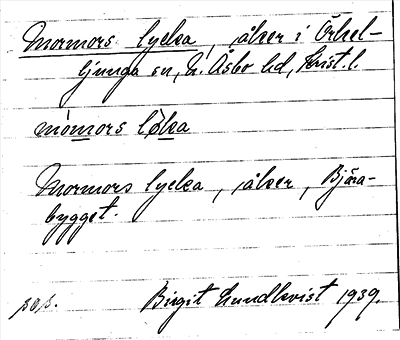 Mormors lycka, åker i Örkel-
ljunga sn, N. Åsbo hd, Krist. l.
mòmors lỳka
Mormors lycka, åker, Bjära-
bygget.
Birgit Lundkvist 1939.